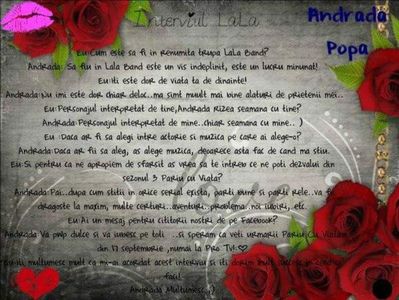 Interviul LaLa
Andrada
Popa
Eu:Cum este sa fii in renumita trupa LaLa Band?
Andrada: Sa fiu in Lala Band este un vis indeplinit, este un lucru minunat!
Eu:Iti este dor de viata ta de dinainte!
Andrada:Nu imi este dor chiar deloc..ma simt muult mai bine alaturi de prietenii mei..
Eu:Personajul interpretat de tine,Andrada Rizea seamana cu tine?
Andrada:Personajul interpretat de mine..chiar seamana cu mine.. )
Eu: Daca ar fi sa alegi intre actorie si muzica pe care ai alege-o?
Andrada:Daca ar fii sa aleg, as alege muzica, deoarece asta fac de cand ma stiu.
Eu:Si pentru ca ne apropiem de sfarsit as vrea sa te intreb ce ne poti dezvalui din
sezonul 3 Pariu cu Viata?
Andrada:Pai..dupa cum stiti in orice serial exista, parti bune si parti rele..va fi
dragoste la maxim, multe certuri..aventuri..problema..noi iubiri, etc.
Eu:Ai un mesaj pentru cititorii nostri de pe Facebook?
Andrada:Va pwp dulce si va iubesc pe toti ..si speram ca veti urmarii Pariu Cu Viata
din 17 septembrie ,numai la Pro Tv!
eu:iti multumesc mult ca mi-a acordat acest interviu si iti dorim mult succes in
faci!
Andrada:Multumesc ;)